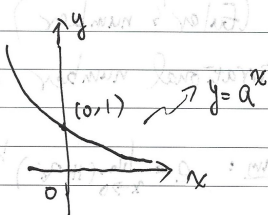 y
(0,1)
y = a^x
0
x